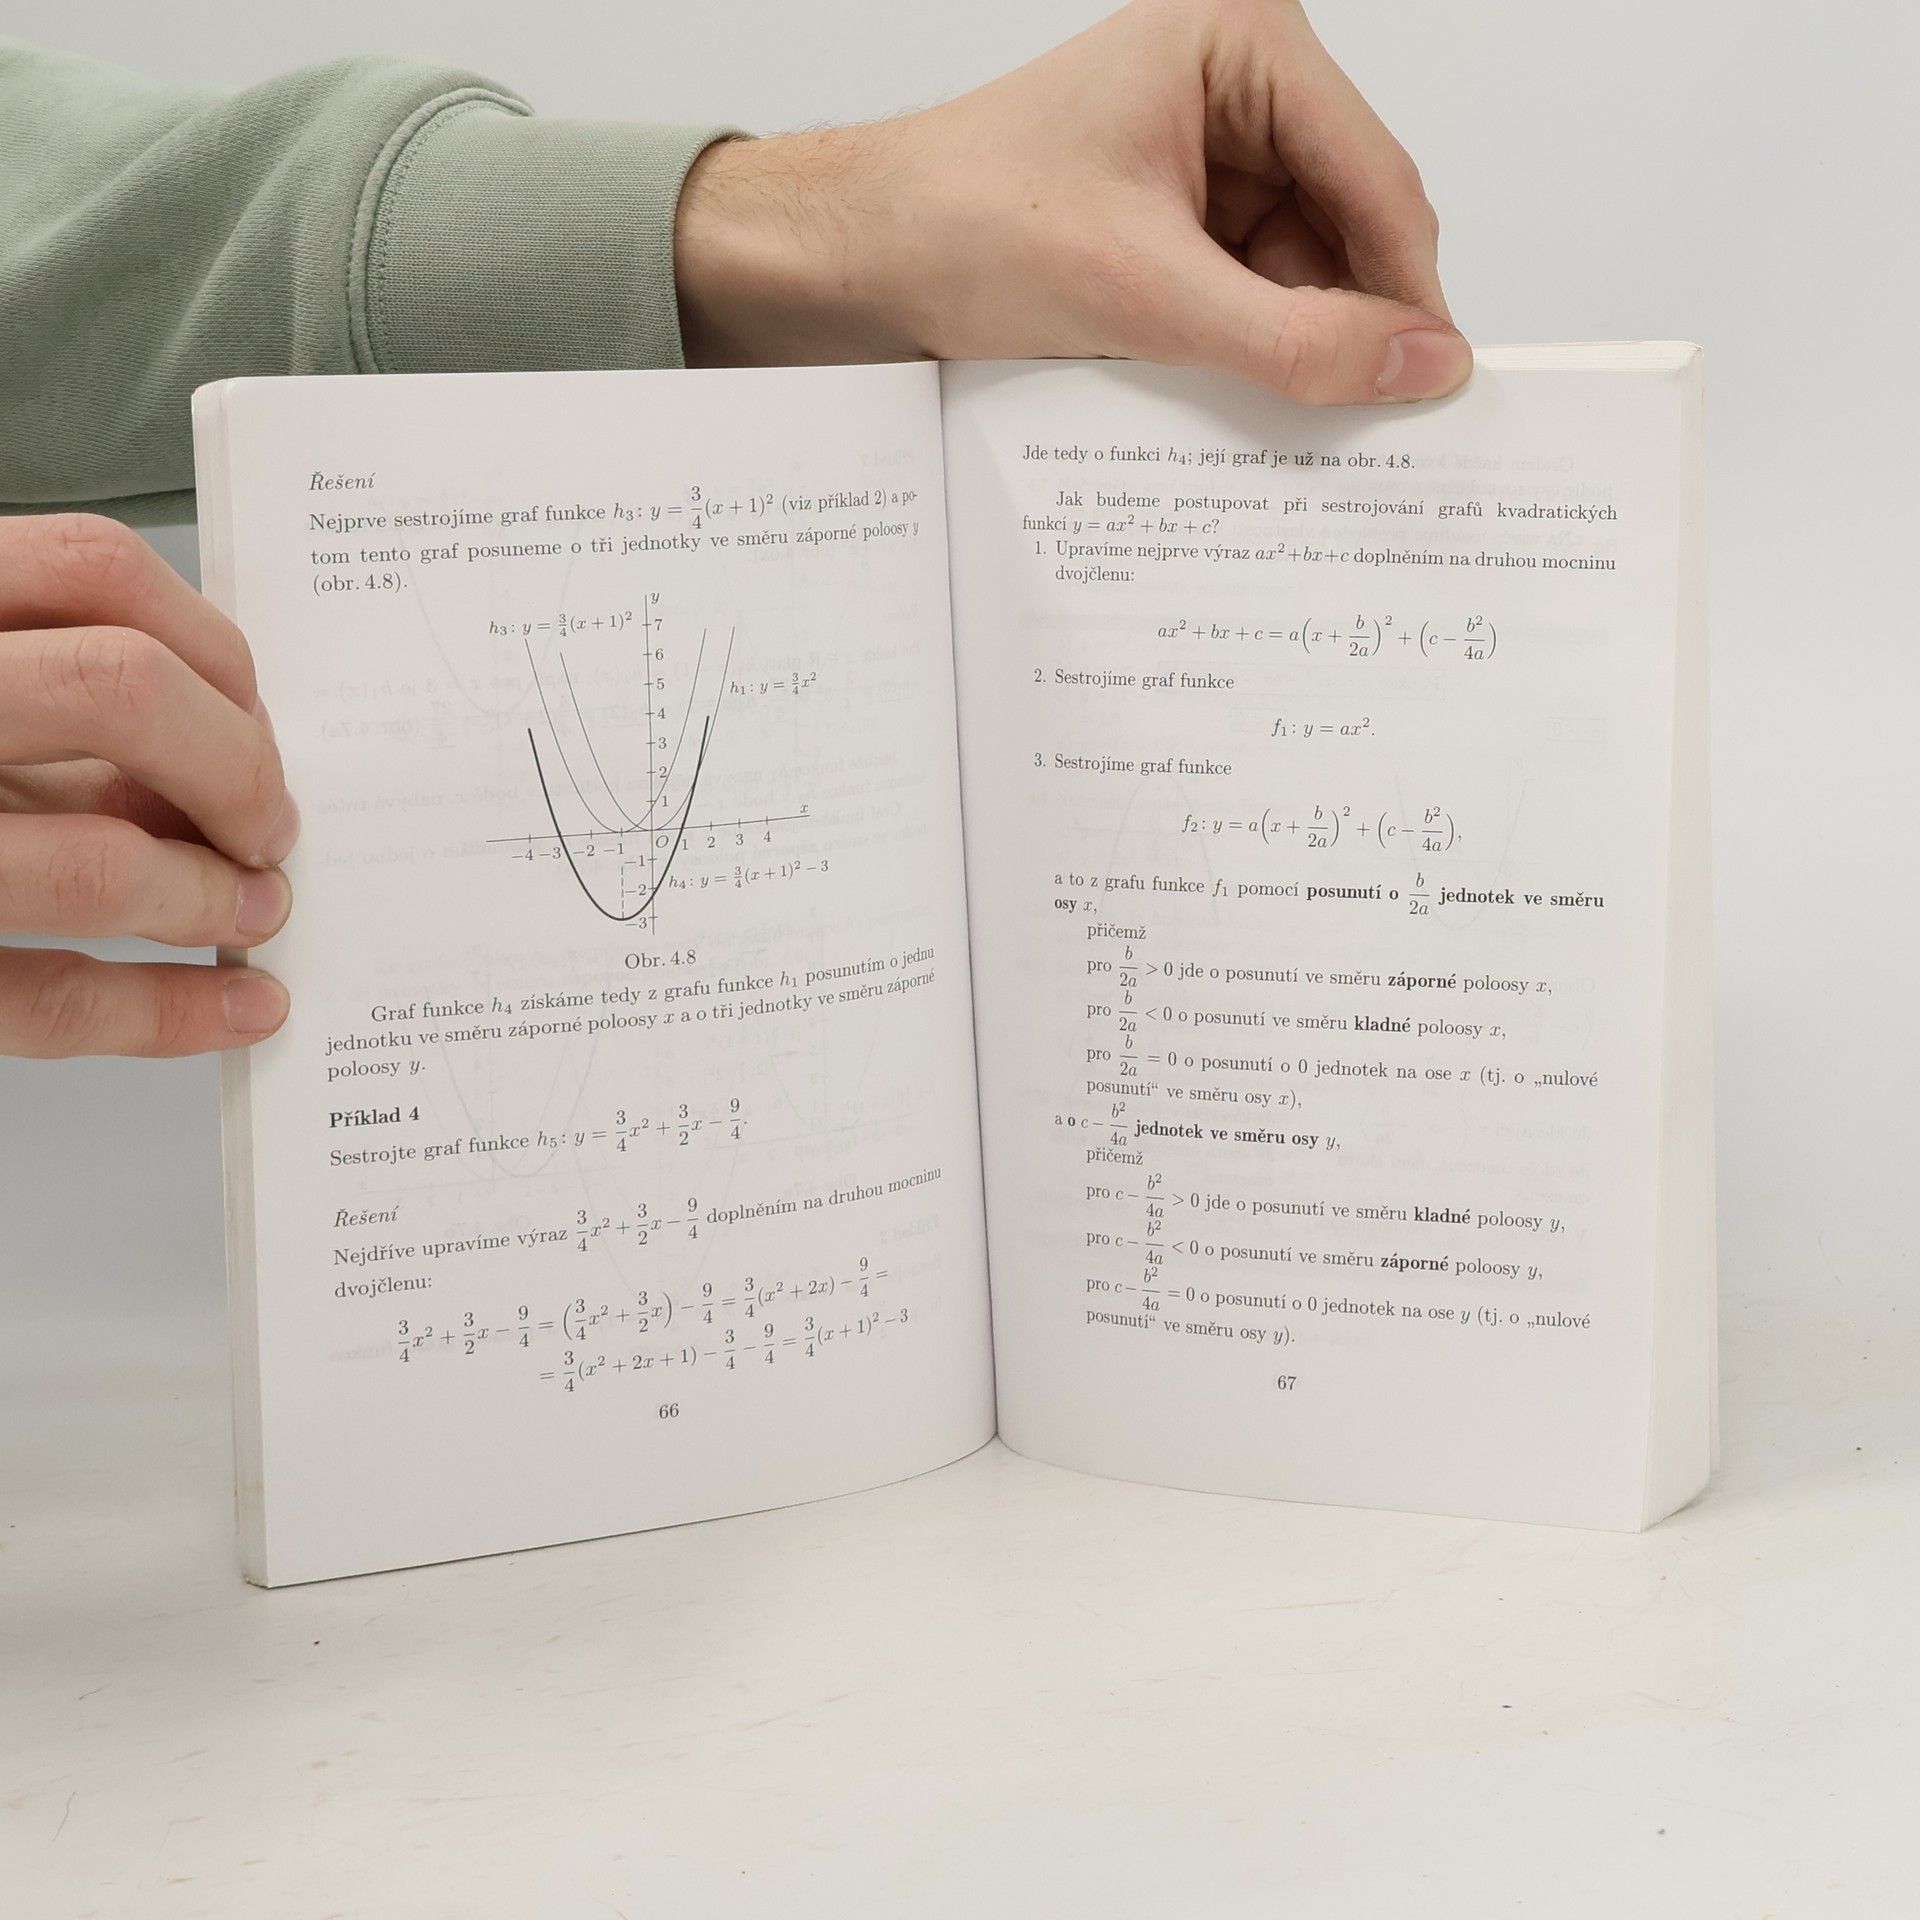 Řešení
Nejprve sestrojíme graf funkce h₃: y = 3/4(x + 1)² (viz příklad 2) a po-
tom tento graf posuneme o tři jednotky ve směru záporné poloosy y
(obr. 4.8).
y
h₃: y = 3/4(x + 1)²
7
6
5
h₁: y = 3/4x²
4
3
2
1
x
−4 −3 −2 −1 O 1 2 3 4
−1
h₄: y = 3/4(x + 1)² − 3
−2
−3
Obr. 4.8
Graf funkce h₄ získáme tedy z grafu funkce h₁ posunutím o jednu
jednotku ve směru záporné poloosy x a o tři jednotky ve směru záporné
poloosy y.
Příklad 4
Sestrojte graf funkce h₅: y = 3/4x² + 3/2x − 9/4.
Řešení
Nejdříve upravíme výraz 3/4x² + 3/2x − 9/4 doplněním na druhou mocninu
dvojčlenu:
3/4x² + 3/2x − 9/4 = (3/4x² + 3/2x) − 9/4 = 3/4(x² + 2x) − 9/4 =
= 3/4(x² + 2x + 1) − 3/4 − 9/4 = 3/4(x + 1)² − 3
66
Jde tedy o funkci h₄; její graf je už na obr. 4.8.
Jak budeme postupovat při sestrojování grafů kvadratických
funkcí y = ax² + bx + c?
1. Upravíme nejprve výraz ax² + bx + c doplněním na druhou mocninu
dvojčlenu:
ax² + bx + c = a(x + b/2a)² + (c − b²/4a)
2. Sestrojíme graf funkce
f₁: y = ax².
3. Sestrojíme graf funkce
f₂: y = a(x + b/2a)² + (c − b²/4a),
a to z grafu funkce f₁ pomocí posunutí o b/2a jednotek ve směru
osy x,
přičemž
pro b/2a > 0 jde o posunutí ve směru záporné poloosy x,
pro b/2a < 0 o posunutí ve směru kladné poloosy x,
pro b/2a = 0 o posunutí o 0 jednotek na ose x (tj. o „nulové
posunutí“ ve směru osy x),
a o c − b²/4a jednotek ve směru osy y,
přičemž
pro c − b²/4a > 0 jde o posunutí ve směru kladné poloosy y,
pro c − b²/4a < 0 o posunutí ve směru záporné poloosy y,
pro c − b²/4a = 0 o posunutí o 0 jednotek na ose y (tj. o „nulové
posunutí“ ve směru osy y).
67